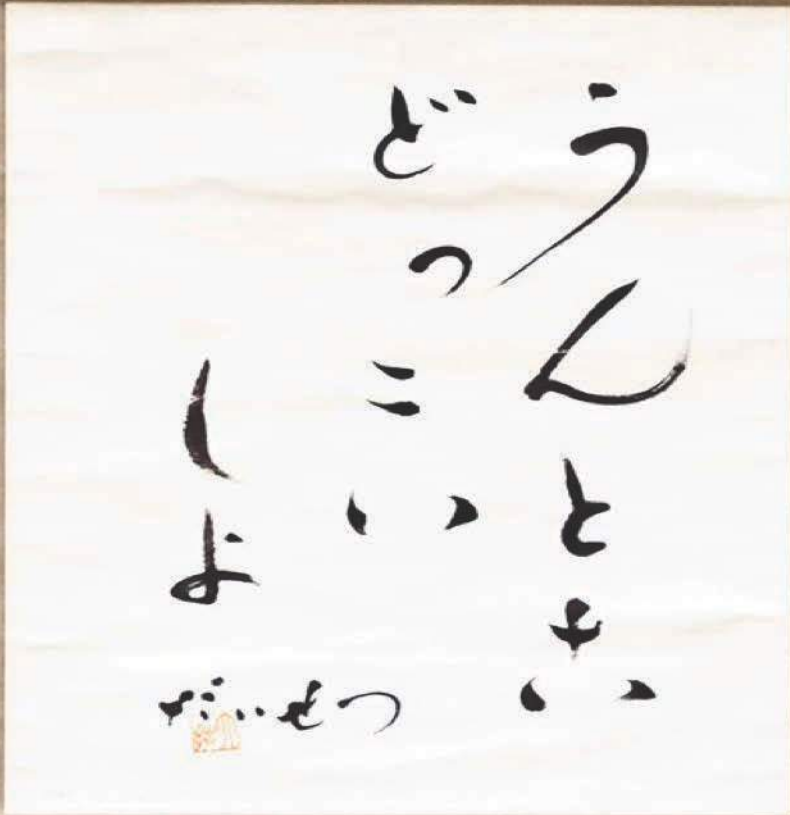 うんとこ
どっこい
しよ
だいせつ